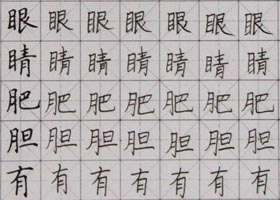 眼眼眼眼眼眼眼
睛睛睛睛睛睛睛
肥肥肥肥肥肥肥
胆胆胆胆胆胆胆
有有有有有有有